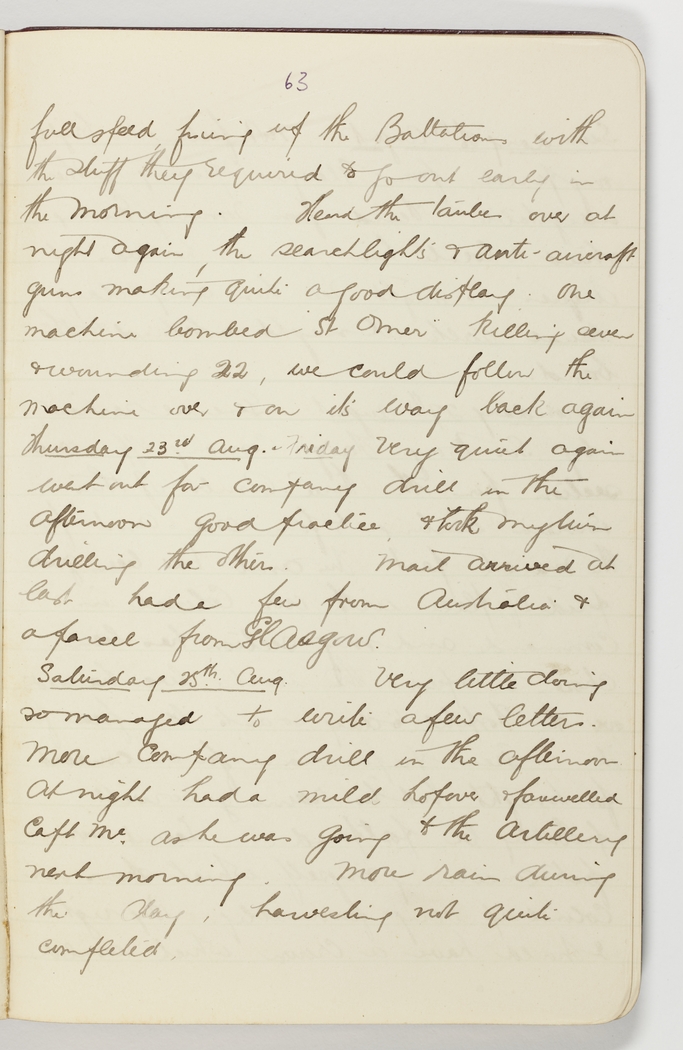 63
full speed, fixing up the Battalions with
the stuff they required to go out early in
the morning. Heard the taubes over at
night again, the searchlights & anti-aircraft
guns making quite a good display. One
machine bombed St Omer killing seven
& wounding 22, we could follow the
machine over & on its way back again
Thursday 23rd Aug. - Friday Very quiet again
went out for company drill in the
afternoon good practice, & took my turn
drilling the others. Mail arrived at
last had a few from Australia &
a parcel from Glasgow.
Saturday 25th Aug. Very little doing
so managed to write a few letters.
More company drill in the afternoon
At night had a mild hopover & farewelled
Capt Mc. as he was going to the Artillery
next morning. More rain during
the day, harvesting not quite
completed.